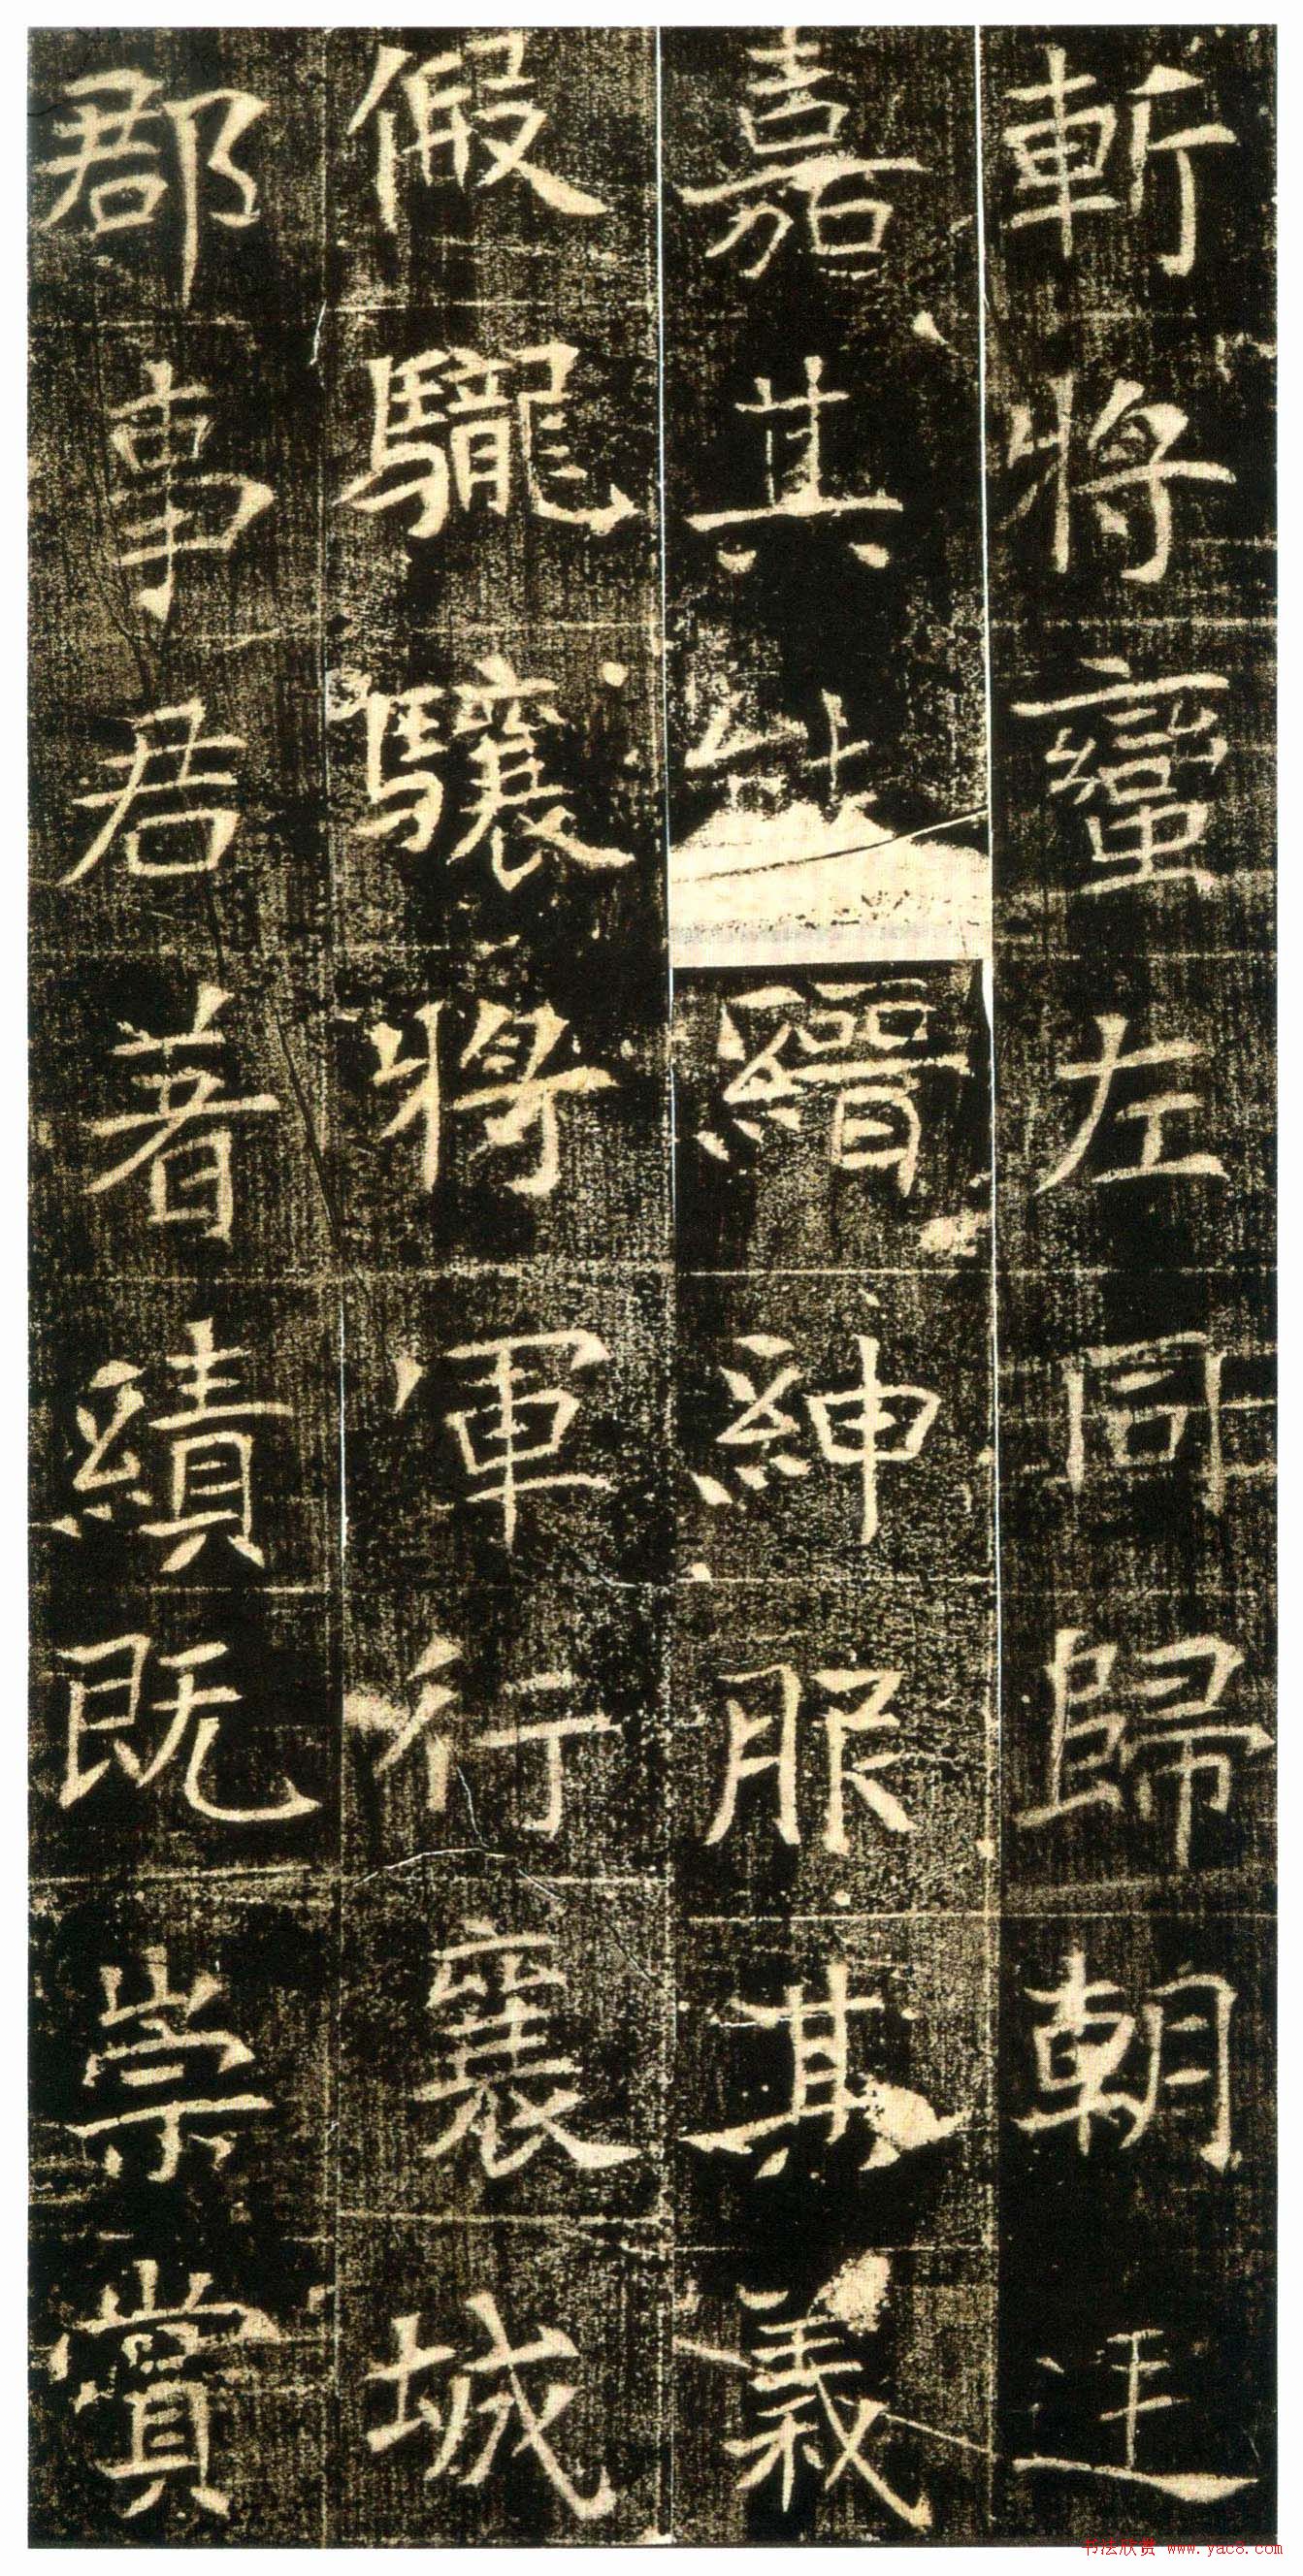 斬將蠻左同歸朝廷
嘉其縉紳服其義
假䮾驤將軍行襄城
郡事君著績既崇賞
书法欣赏 www.yac8.com